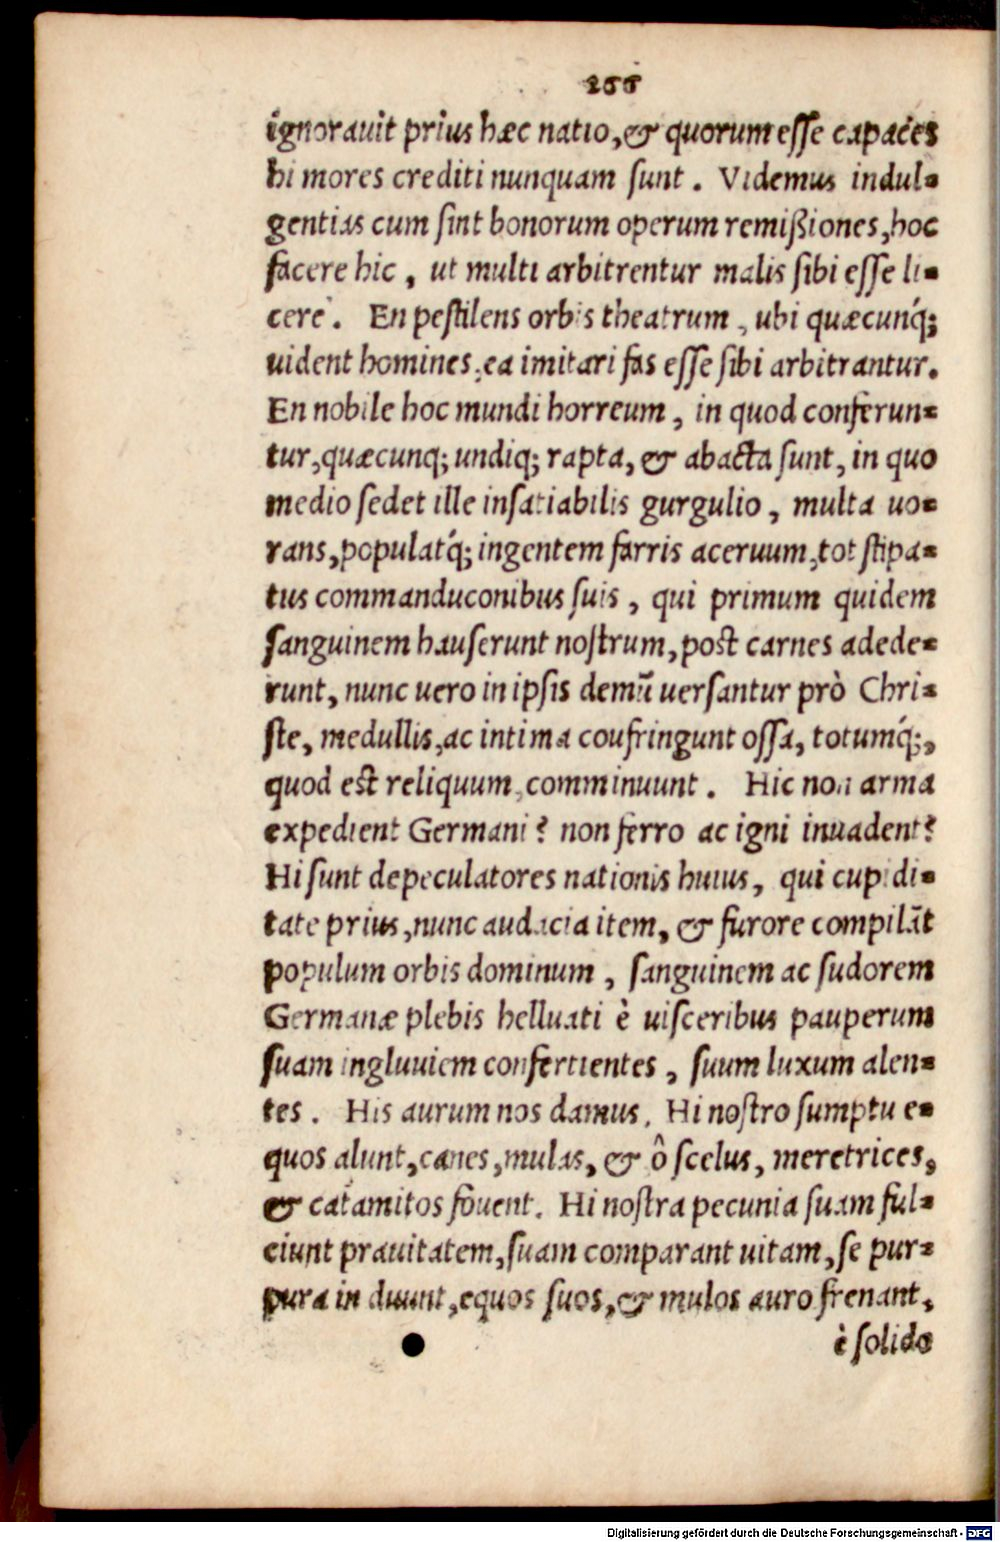 266
ignorauit prius hæc natio, & quorum esse capaces
hi mores crediti nunquam sunt. Videmus indul-
gentias cum sint bonorum operum remißiones, hoc
facere hic, ut multi arbitrentur malis sibi esse li-
cere. En pestilens orbis theatrum, ubi quæcunq́;
uident homines, ea imitari fas esse sibi arbitrantur.
En nobile hoc mundi horreum, in quod conferun-
tur, quæcunq; undiq; rapta, & abacta sunt, in quo
medio sedet ille insatiabilis gurgulio, multa uo-
rans, populatq́; ingentem farris aceruum, tot stipa-
tus commanduconibus suis, qui primum quidem
sanguinem hauserunt nostrum, post carnes adede-
runt, nunc uero in ipsis demū uersantur prò Chri-
ste, medullis, ac intima coufringunt ossa, totumq́;,
quod est reliquum, comminuunt. Hic non arma
expedient Germani? non ferro ac igni inuadent?
Hi sunt depeculatores nationis huius, qui cupidi-
tate prius, nunc audacia item, & furore compilāt
populum orbis dominum, sanguinem ac sudorem
Germanæ plebis helluati è uisceribus pauperum
suam ingluuiem confertientes, suum luxum alen-
tes. His aurum nos damus. Hi nostro sumptu e-
quos alunt, canes, mulas, & ô scelus, meretrices,
& catamitos fouent. Hi nostra pecunia suam ful-
ciunt prauitatem, suam comparant uitam, se pur-
pura in duunt, equos suos, & mulos auro frenant,
è solido
Digitalisierung gefördert durch die Deutsche Forschungsgemeinschaft - DFG